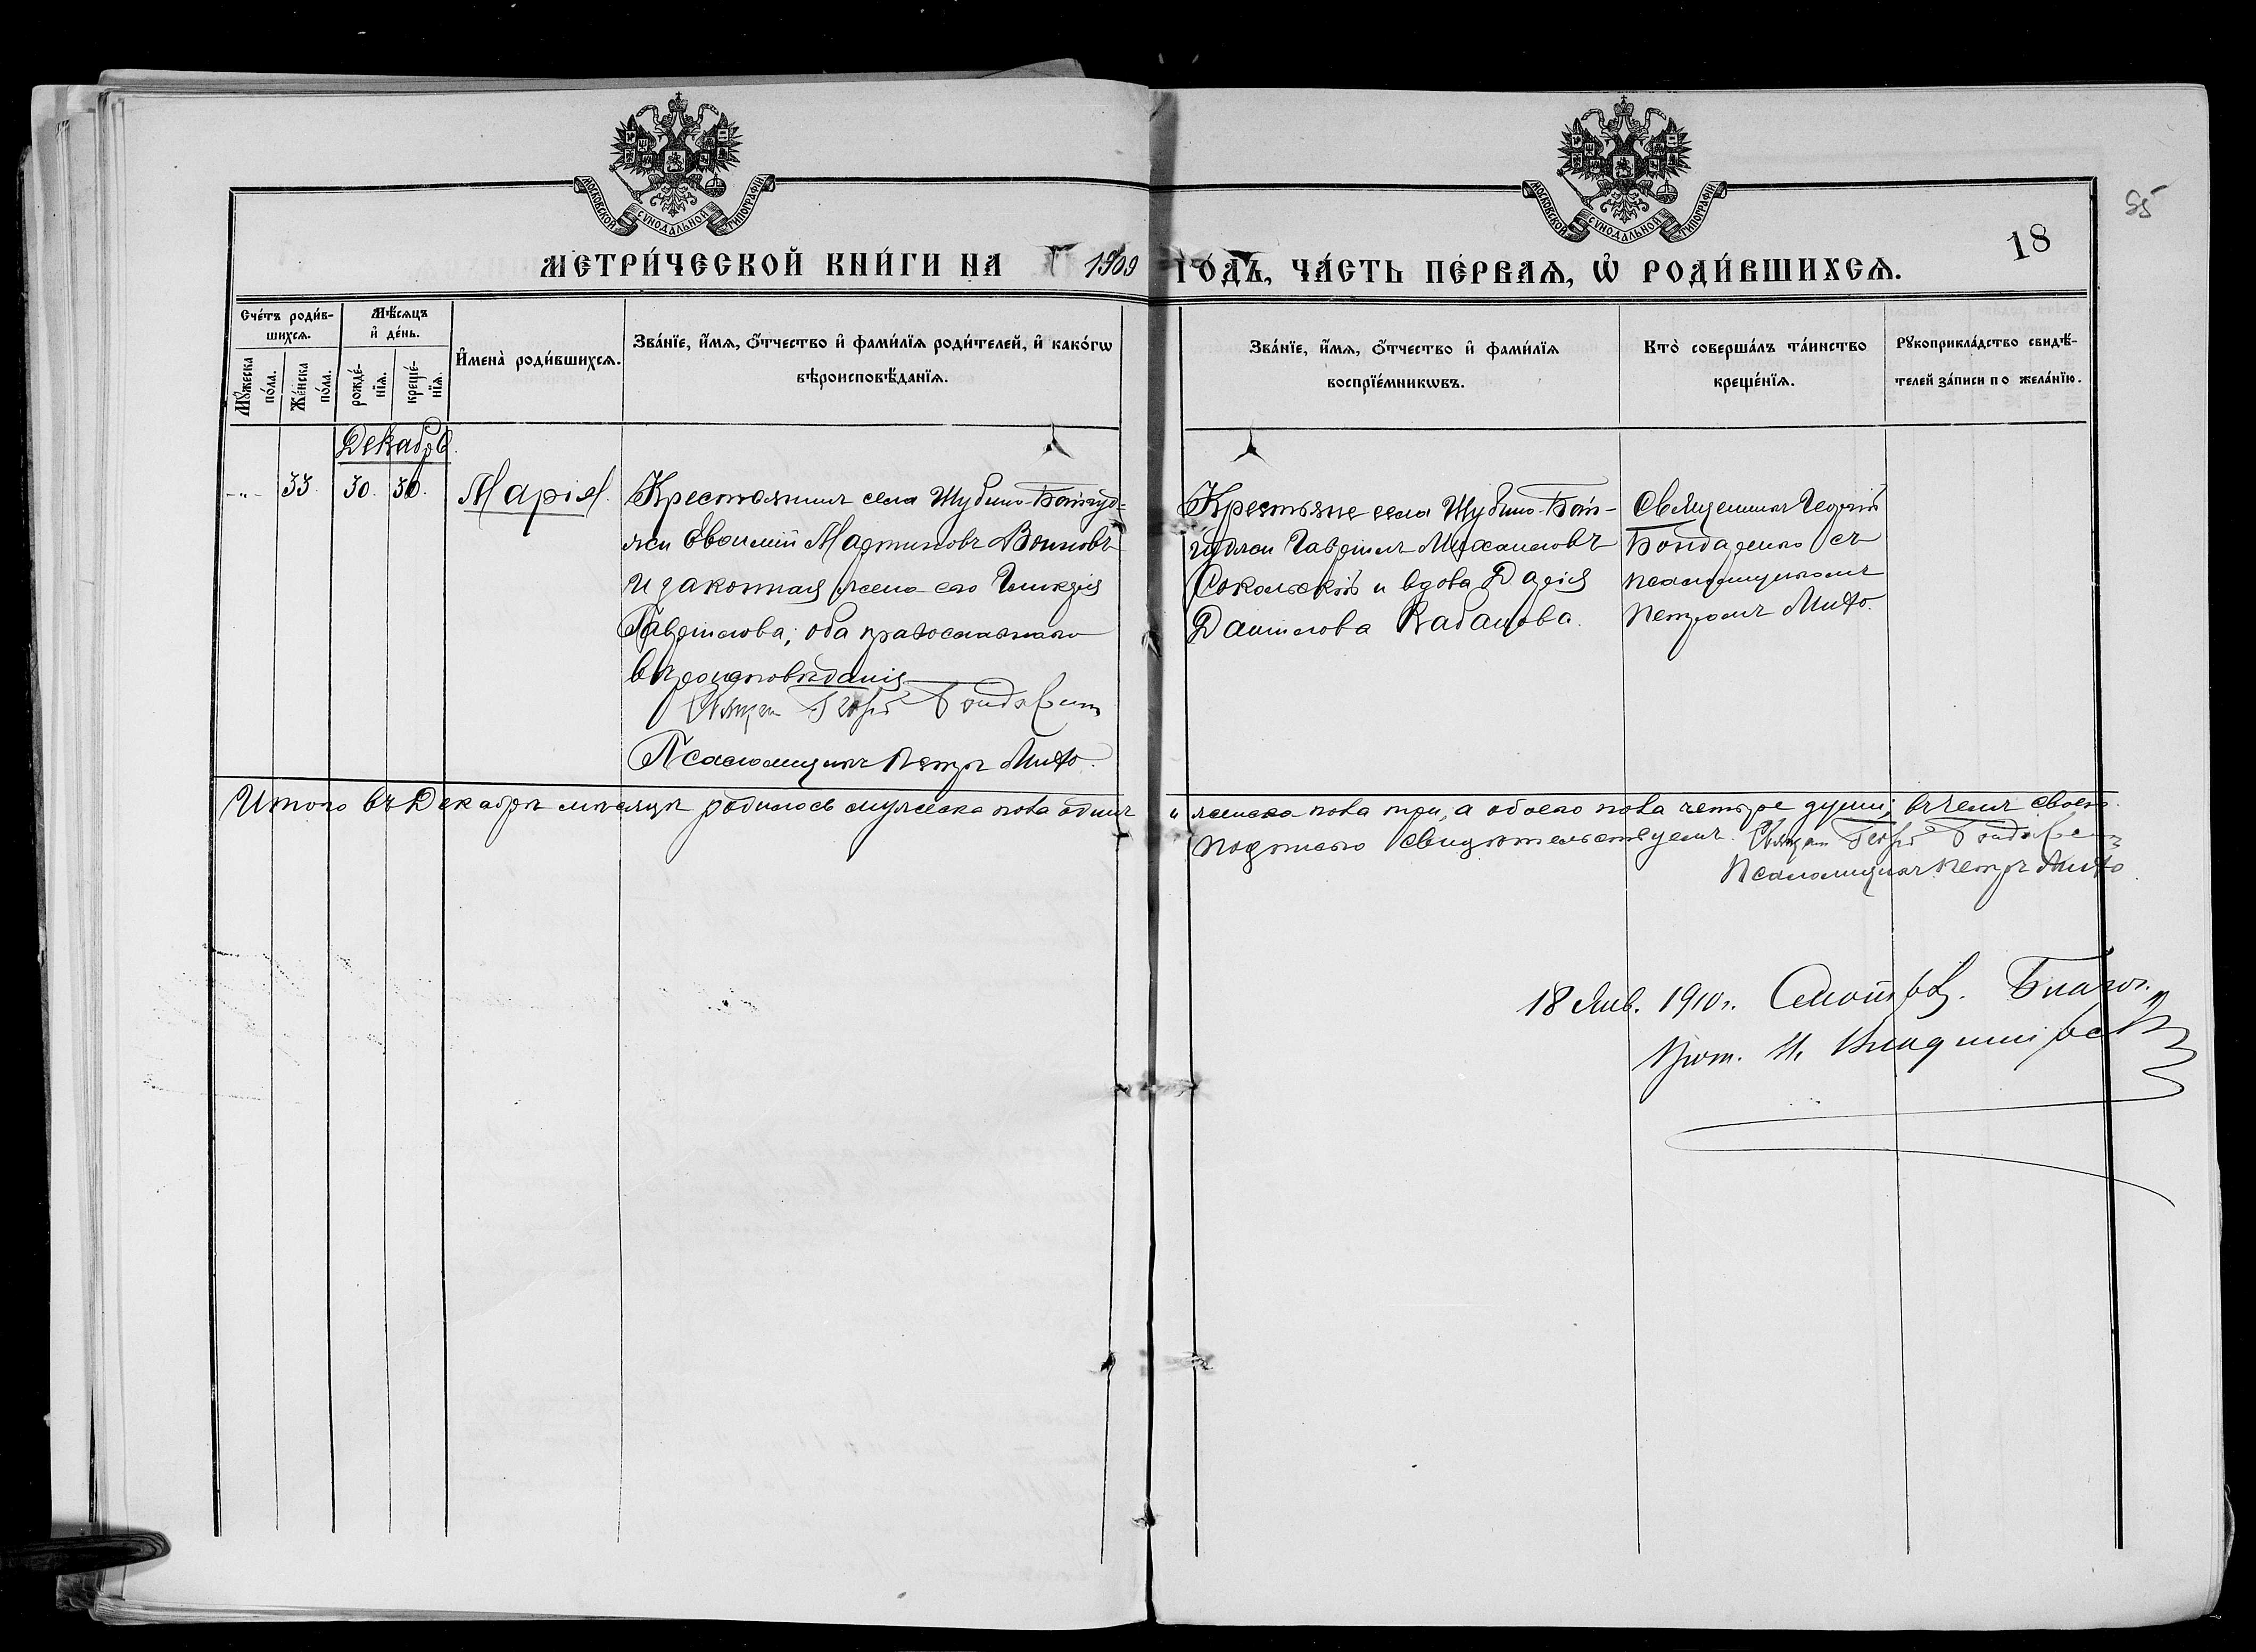 МОСКОВСКОЙ СѴНОДАЛЬНОЙ ТИПОГРАФІИ
МОСКОВСКОЙ СѴНОДАЛЬНОЙ ТИПОГРАФІИ
85
18
МЕТРИ́ЧЕСКОЙ КНИ́ГИ НА 1909 ГО́ДЪ, ЧА́СТЬ ПЕ́РВАѦ, Ѡ҆ РОДИ́ВШИХСѦ.
Сче́тъ роди́в-
шихсѧ.
Мѣ́сѧцъ
и҆ де́нь.
Мꙋ́жеска по́ла.
Же́нска по́ла.
рожде́-
нїѧ.
креще́-
нїѧ.
И҆мена̀ роди́вшихсѧ.
Зва́нїе, и҆́мѧ, ѻ҆́тчество и҆ фами́лїѧ роди́телей, и҆ како́гѡ
вѣроисповѣ́данїѧ.
Зва́нїе, и҆́мѧ, ѻ҆́тчество и҆ фами́лїѧ
воспрїе́мникѡвъ.
Кто̀ соверша́лъ та́инство
креще́нїѧ.
Рꙋкоприкла́дство свидѣ́-
телей за́писи по жела́нїю.
Декабрь.
-„- 33. 30. 30. Марія.
Крестьянинъ села Шубино-Бай-
Мартиновъ Воиновъ
и законная жена его Гликерія
Гаврилова; оба православнаго
вѣроисповѣданія
Священ Георгій Бондаренко
Псаломщикъ Петръ
Крестьяне села Шубино-Бай-
Гавріилъ Михаиловъ
Сокольскій и вдова Дарія
Даніилова Кабанова.
Священникъ Георгій
Бондаренко съ
псаломщикомъ
Петромъ
Итого въ Декабрѣ мѣсяцѣ родилось мужеска пола одинъ и женска пола три, а обоего пола четыре души; въ чемъ своею
подписью свидѣтельствуемъ. Священ Георгій Бондаренко
Псаломщикъ Петръ
18 Янв. 1910 г. Благоч.
Прот. Н. Владимірскій